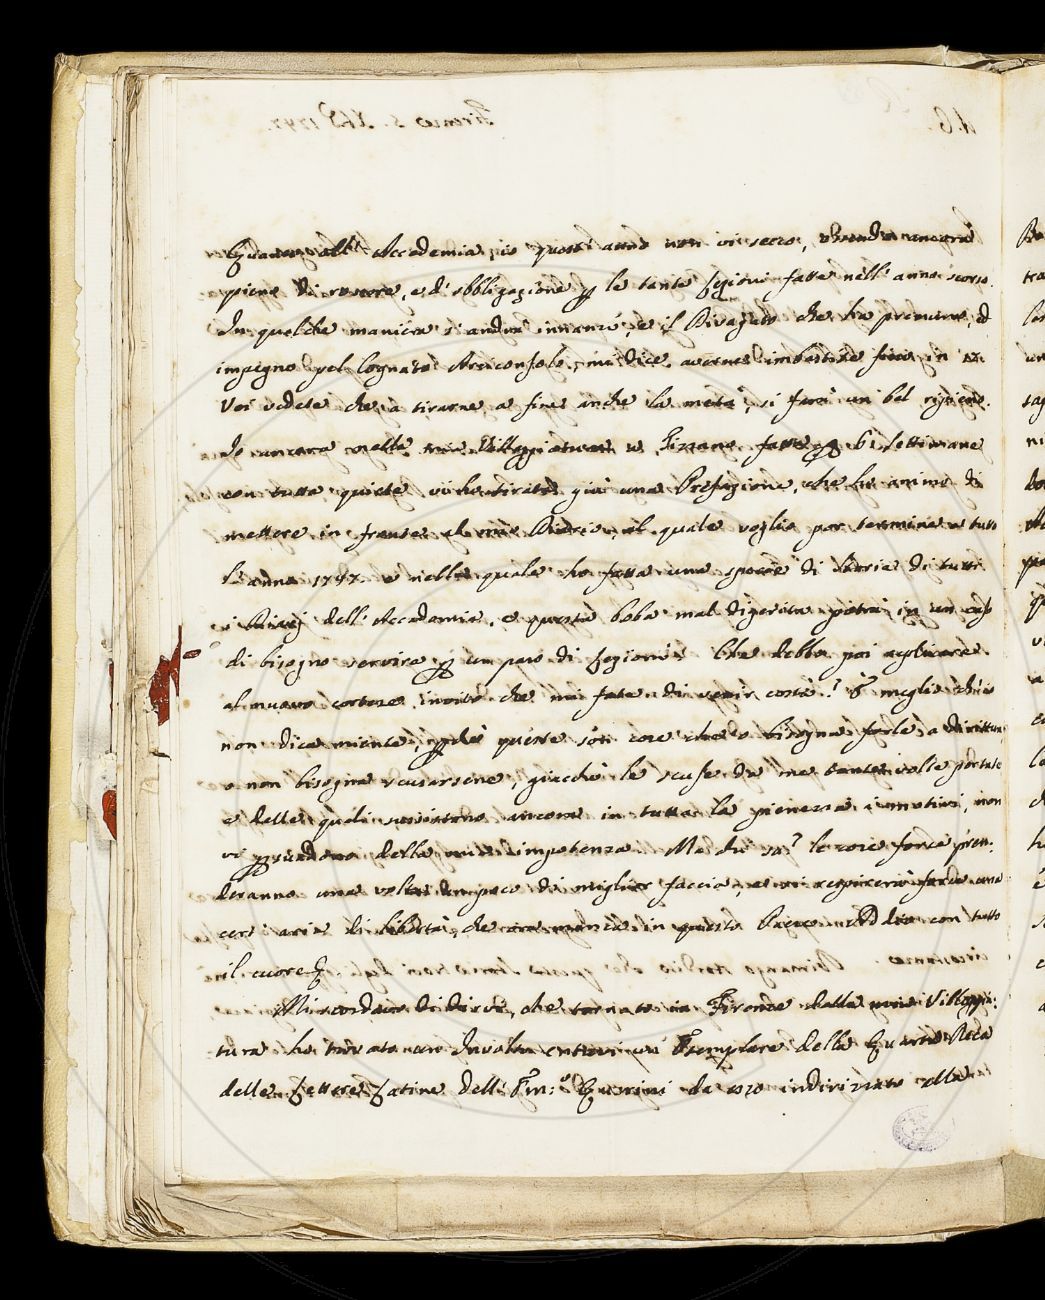 Quanto all' Accademia, io quest' anno non vi sero, essendo ancora
pieno di rossore, e d' obbligazione per le tante lezioni fatte nell' anno scorso.
In qualche maniera si andrà innanzi, e il Divagato che ha premura, ed
impegno pel Cognato Arciconsolo, mi dice averne imbastite fino in
Voi vedete che a tirarne a fine anche la metà, si farà un bel ripieno.
Io ancora nella mia Villeggiatura a Fizzano fatta per 6 settimane
con tutta quiete, vi ho tirato giù una Prefazione, che ho animo di
mettere in fronte al mio Diario, al quale voglio por termine a tutto
l' anno 1747. e nella quale ho fatta una specie di Storia di tutti
i Diarj dell' Accademia, e questa roba mal digerita potrà in un caso
di bisogno servire per un paro di lezioni. Che debbo poi replicare
al nuovo cortese invito che mi fate di venir costà? È meglio ch' io
non dica niente, perchè queste son cose che o bisogna farle a dirittura
o non bisogna scusarsene, giacchè le scuse da me tante volte portate
e delle quali sussistono ancora in tutta la pienezza i motivi, non
vi persuadono della mia impotenza. Ma chi sa? le cose forse pren:
deranno una volta un poco di miglior faccia, e si respirerà forse una
cert' aria di libertà, che ora manca in questo Paese. Addio con tutto
il cuore &
Mi scordavo di dirvi, che tornato in Firenze dalla mia Villeggia:
tura ho trovato un Involto entrovi un Esemplare della Quarta Deca
delle Lettere Latine dell' Em:o Querini da esso indirizzato alla